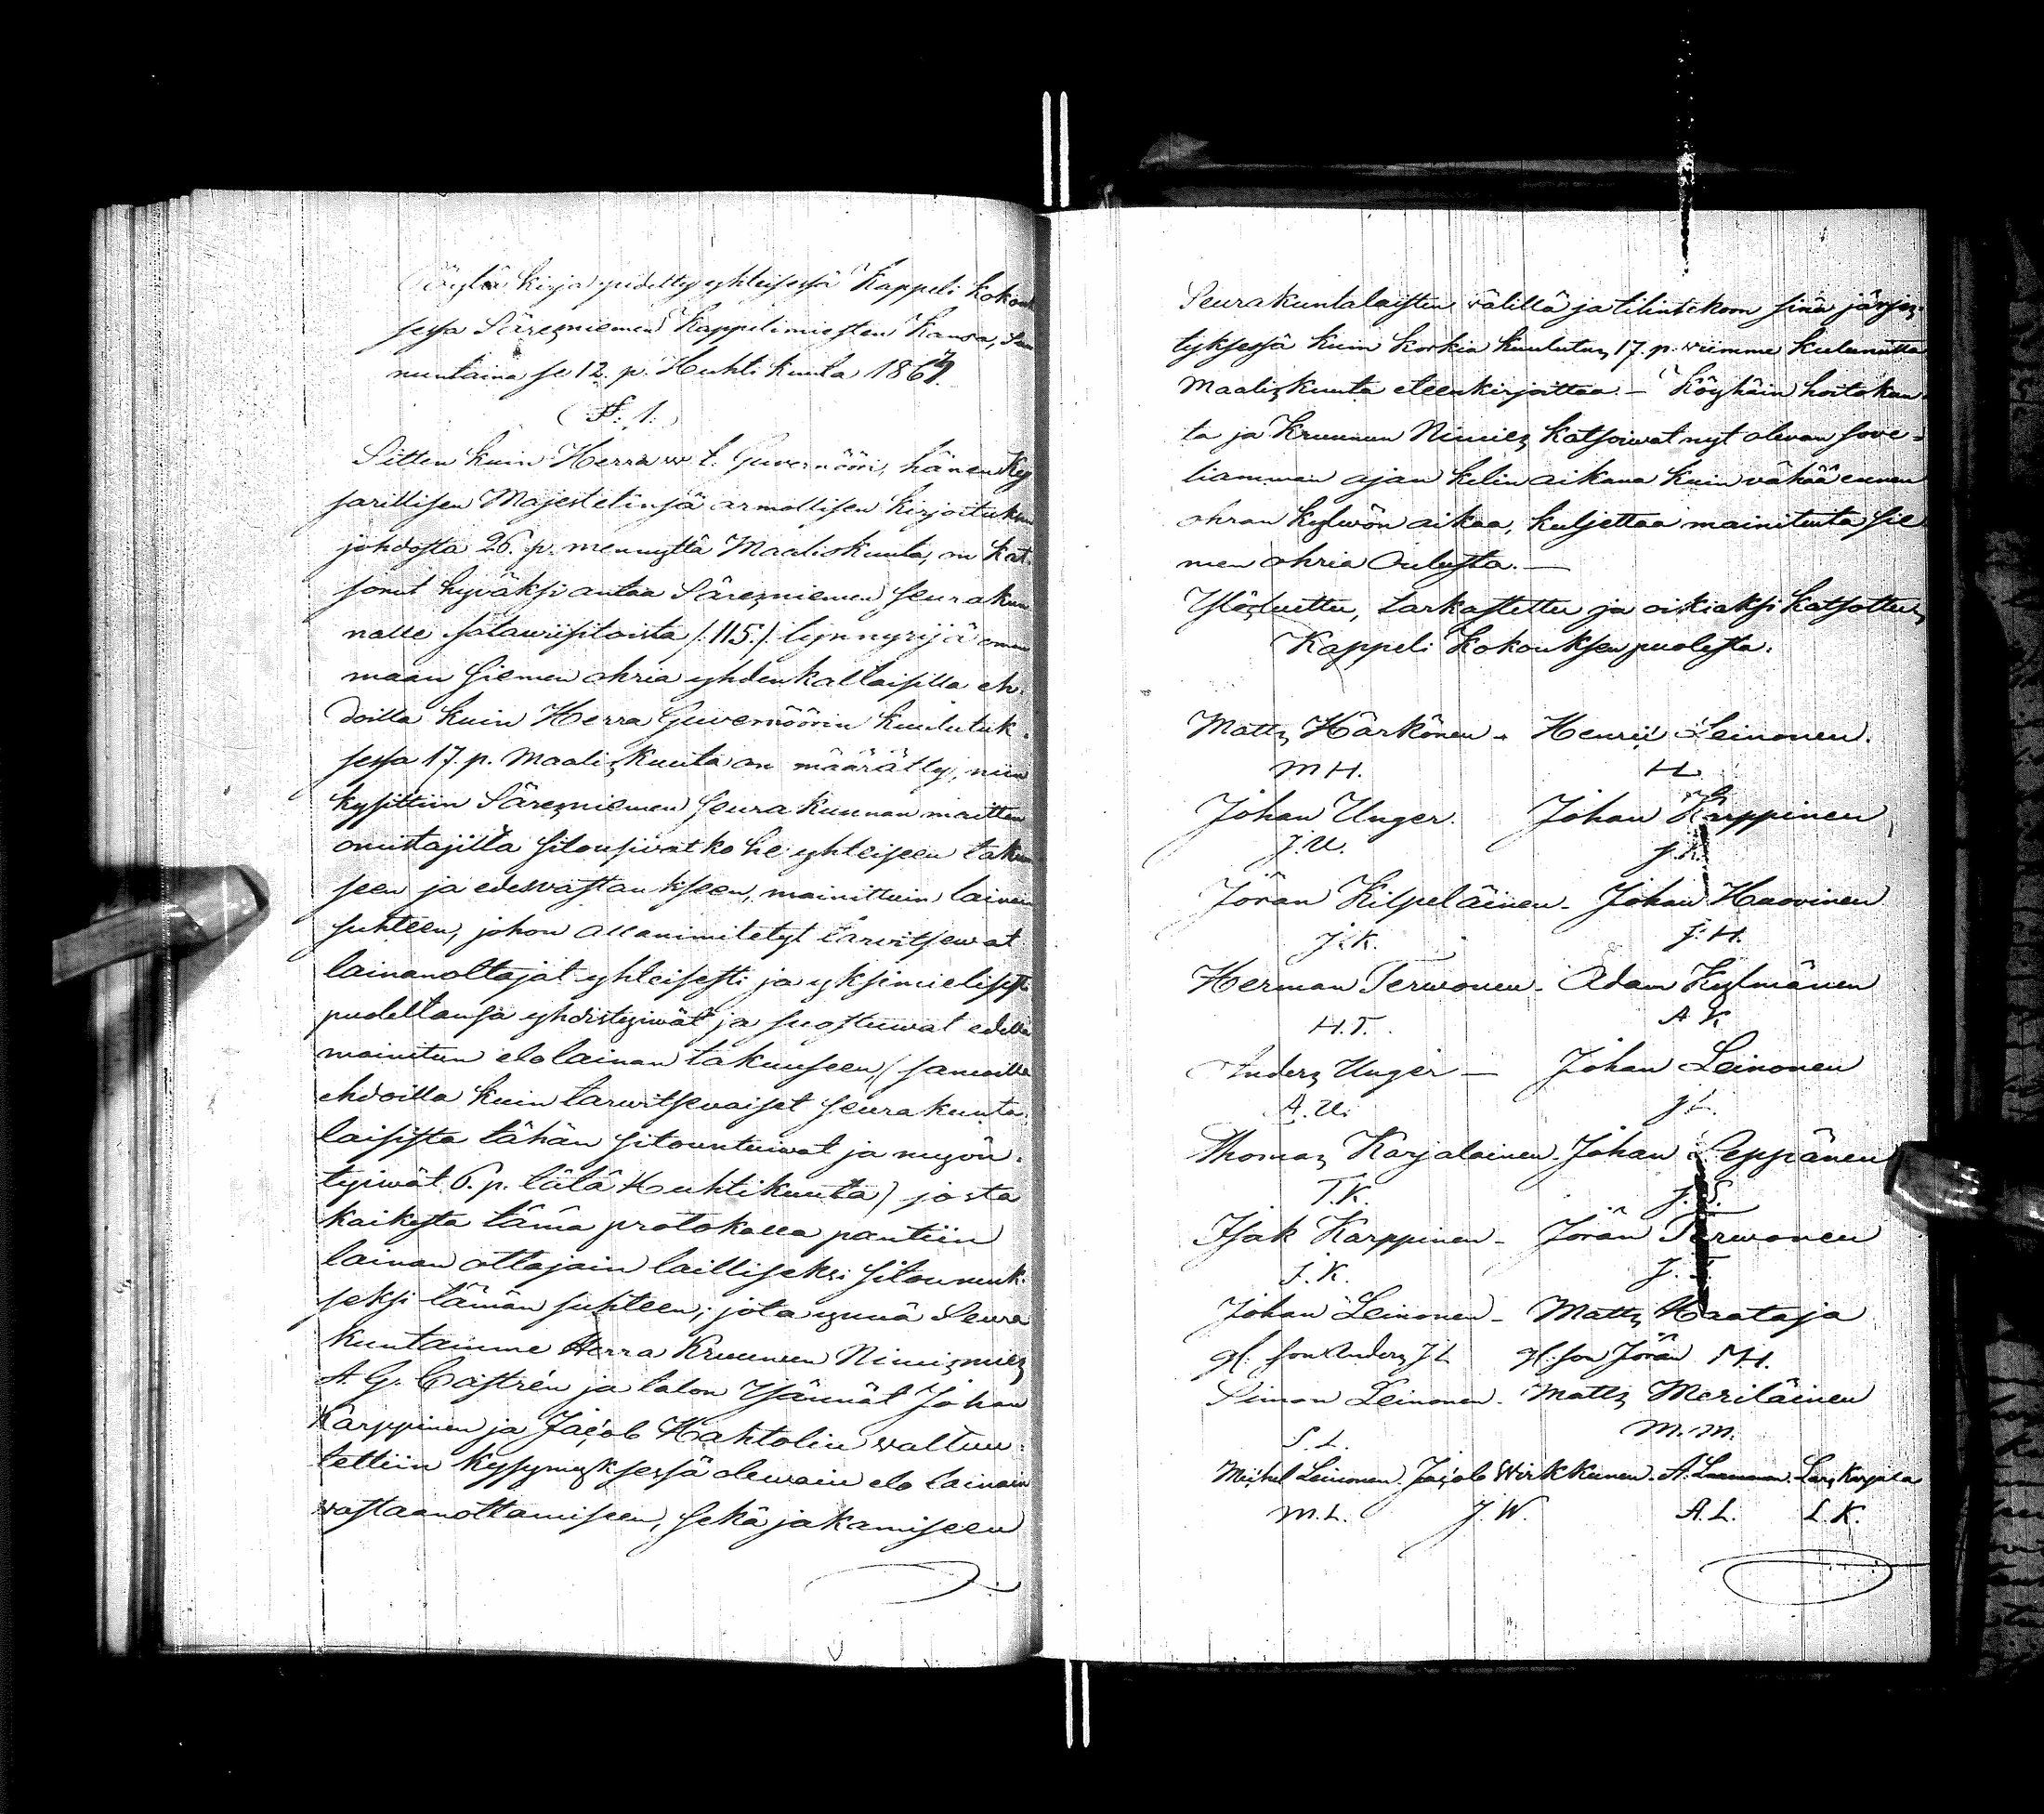 Pöytä kirja pidetty yhteisessä Kappeli kokouk
sessa Säresniemen Kappelimiesten kansa, Sun
nuntaina se 12. p. Huhti kuuta 1867.
(§: 1:)
Sitten kuin Herra w t. Guvernööri, hänen Key
sarillisen Majestetinsä armollisen kirjoituksen
johdosta 26. p. mennyttä Maaliskuuta, on kat-
sonut hyväksi antaa Säresniemen seurakun
nalle /:115:/ tynnyrijä
maan siemen ohria yhdenkaltaisilla eh-
doilla kuin Herra Guvernöörin kuulutuk-
sessa 17. p. Maaliskuuta on määrätty, niin
kysyttiin Säresniemen seurakunnan maitten
omistajilta sitousivatko he yhteiseen takuu
seen ja edesvastaukseen, mainittuin lainain
suhteen, johon allanimitetyt tarvitsewat
lainanottajat yhteisesti ja yksimielisesti
puolettansa yhdistyiwät ja suostuiwat edellä
mainitun elolainan takuuseen, (samoilla
ehdoilla kuin tarwitsewaiset seurakunta-
laisista tähän sitountuiwat ja myön-
tyiwät 6. p. tätä Huhtikuuta) josta
kaikesta tämä protokolla pantiin
lainan ottajain lailliseksi sitoumuk-
seksi tämän suhteen; jota ynnä Seura
kuntamme Herra Kruunun Nimismies
A. G. Castrén ja talon Ysännät Johan
Karppinen ja Jacob Hahtolin waltuu-
tettiin kysymyksessä olewain elo lainain
wastaanottamiseen, sekä jakamiseen
Seurakuntalaisten välillä ja tilintekoon siinä järjes-
tyksessä kuin korkia kuulutus 17. p. viimme kulunutta
Maaliskuuta eteenkirjoittaa. – Köyhäin hoitokun-
ta ja Kruunun Nimies katsoiwat nyt olevan sove-
liamman ajan kelin aikana kuin vähää ennen
ohran kylwön aikaa, kuljettaa mainituita sie
men ohria Oulusta. —
Ylösluettu, tarkastettu ja oikiaksi katsottu,
Kappeli Kokouksen puolesta:
Matts Härkönen - Henrik Leinonen.
M H. H L
Johan Unger. Johan Karppinen
J. U. J. K.
Jöran Kilpeläinen - Johan Huovinen
J. K. J. H.
Herman Terwonen - Adam Kylmänen
H. T. A K
Anders Unger — Johan Leinonen
A. U. J L.
Thomas Karjalainen. Johan Seppänen
T. K. J. S.
Isak Karppinen - Jöran Terwonen
I. K. J. T.
Johan Leinonen - Matts Haataja
gl. son Anders J L gl: son Jöran M H.
Simon Leinonen. Matts Meriläinen
S. L. M. M.
Michel Leinonen. Jacob Wirkkunen. A. Laamanen. Lars Karjala
M. L. J. W. A. L. L. K.